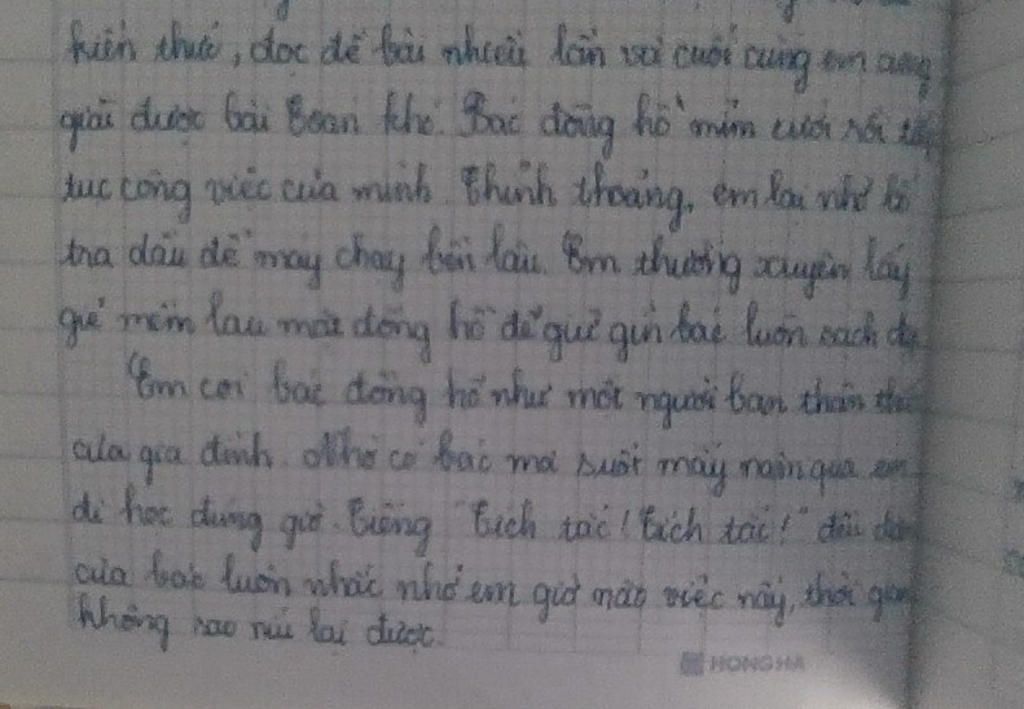 kiến thức, đọc đề bài nhiều lần và cuối cùng em cũng
giải được bài toán khó. Bác đồng hồ mỉm cười rồi
tục công việc của mình. Thỉnh thoảng, em lại nhờ bố
tra dầu để máy chạy bền lâu. Em thường xuyên lấy
giẻ mềm lau mặt đồng hồ để giữ gìn bác luôn sạch
Em coi bác đồng hồ như một người bạn thân
của gia đình. Nhờ có bác mà suốt mấy năm qua em
đi học đúng giờ. Tiếng "Tích tắc! Tích tắc!" đều
của bác luôn nhắc nhở em giờ nào việc nấy, thời gian
không sao níu lại được.
HONG HA